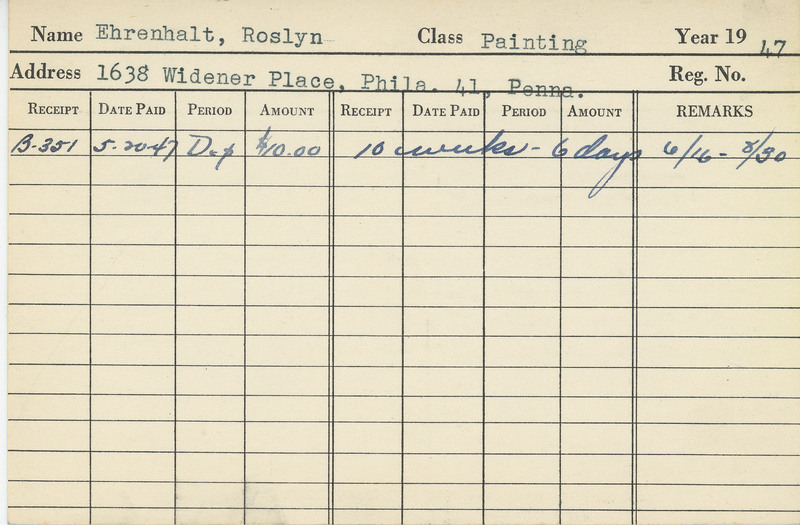 Name Ehrenhalt, Roslyn Class Painting Year 19 47
Address 1638 Widener Place, Phila. 41, Penna. Reg. No.
RECEIPT DATE PAID PERIOD AMOUNT RECEIPT DATE PAID PERIOD AMOUNT REMARKS
B-351 5-20-47 Dep $10.00 10 weeks - 6 days 6/16 - 8/30